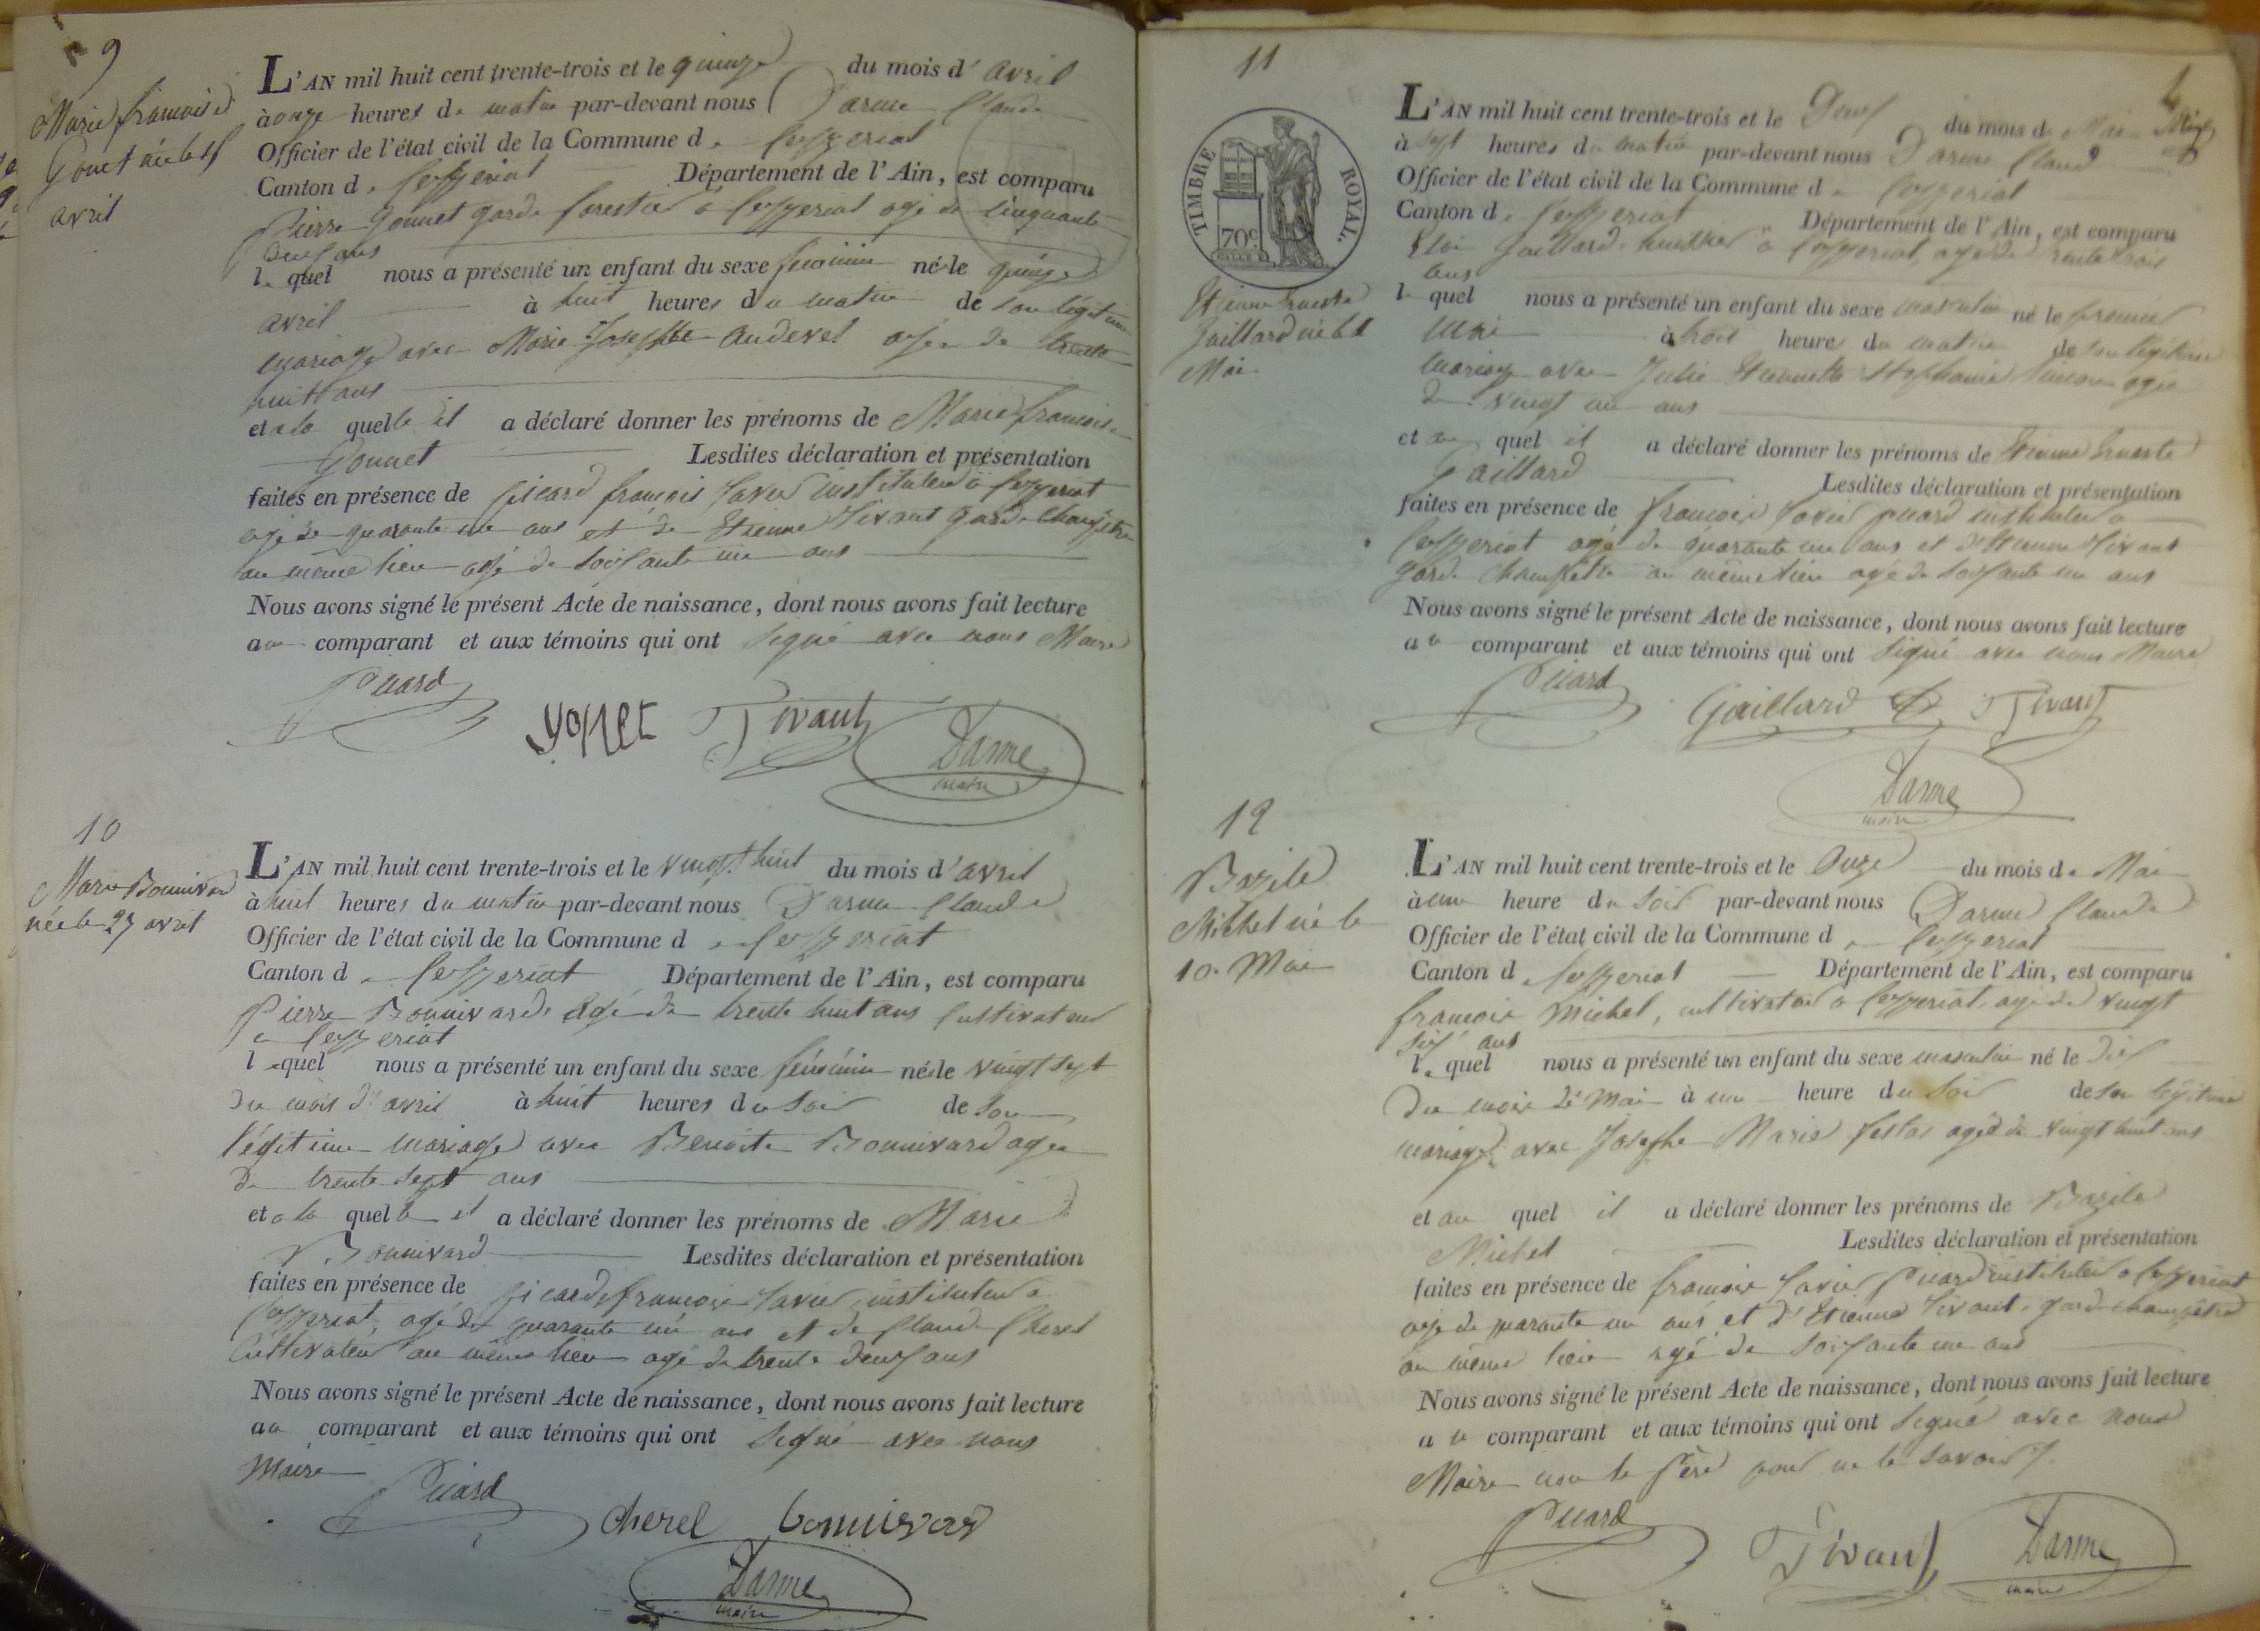 9
Marie françoise
Gonet née le 15
avril
L'AN mil huit cent trente-trois et le quinze du mois d'avril
à onze heures du matin par-devant nous Darme Claude
Officier de l'état civil de la Commune de Ceyzeriat
Canton de Ceyzeriat Département de l'Ain, est comparu
Pierre Gonnet garde forestier à Ceyzeriat agé de cinquante
deux ans
le quel nous a présenté un enfant du sexe féminin né le quinze
avril à huit heures du matin de son légitime
mariage avec Marie Josephte Andevel agée de trente
huit ans
et a la quelle il a déclaré donner les prénoms de Marie françoise
Gonnet Lesdites déclaration et présentation
faites en présence de picard françois Xavier instituteur à Ceyzeriat
agé de quarante un ans et de Etienne Tivant garde champêtre
au même lieu agé de soixante un ans
Nous avons signé le présent Acte de naissance, dont nous avons fait lecture
au comparant et aux témoins qui ont signé avec nous Maire
Picard
gonet Tivant
Darme
maire
10
Marie Bonnivard
née le 27 avril
L'AN mil huit cent trente-trois et le vingt huit du mois d'avril
à huit heures du matin par-devant nous Darme Claude
Officier de l'état civil de la Commune de Ceyzeriat
Canton de Ceyzeriat Département de l'Ain, est comparu
Pierre Bonnivard agé de trente huit ans cultivateur
a Ceyzeriat
le quel nous a présenté un enfant du sexe féminin née le vingt sept
du mois d'avril à huit heures du soir de son
légitime mariage avec Benoite Bonnivard agée
de trente sept ans
et a la quelle il a déclaré donner les prénoms de Marie
Bonnivard Lesdites déclaration et présentation
faites en présence de picard françois Xavier instituteur a
Ceyzeriat, agé de quarante un ans et de Claude Cherel
Cultivateur au même lieu agé de trente deux ans
Nous avons signé le présent Acte de naissance, dont nous avons fait lecture
au comparant et aux témoins qui ont signé avec nous
Maire
Picard
cherel bonnivard
Darme
maire
11
TIMBRE ROYAL.
70c
Etienne Erneste
Gaillard né le 1
Mai
L'AN mil huit cent trente-trois et le Deux du mois de Mai
à sept heures du matin par-devant nous Darme Claude
Officier de l'état civil de la Commune de Ceyzeriat
Canton de Ceyzeriat Département de l'Ain, est comparu
Gaillard huissier à Ceyzeriat, agé de trente trois
ans
le quel nous a présenté un enfant du sexe masculin né le premier
Mai à trois heures du matin de son légitime
mariage avec Julie Etiennette Stephanie agée
de vingt un ans
et au quel il a déclaré donner les prénoms de Etienne Erneste
Gaillard Lesdites déclaration et présentation
faites en présence de françois Xavier picard instituteur a
Ceyzeriat agé de quarante un ans et d'Etienne Tivant
garde champêtre au même lieu agé de soixante un ans
Nous avons signé le présent Acte de naissance, dont nous avons fait lecture
au comparant et aux témoins qui ont signé avec nous Maire
Picard
Gaillard Tivant
Darme
maire
12
Bazile
Michel né le
10 Mai
L'AN mil huit cent trente-trois et le onze du mois de Mai
à une heure du soir par-devant nous Darme Claude
Officier de l'état civil de la Commune de Ceyzeriat
Canton de Ceyzeriat Département de l'Ain, est comparu
françois Michel, cultivateur à Ceyzeriat, agé de vingt
six ans
le quel nous a présenté un enfant du sexe masculin né le dix
du mois de Mai à une heure du soir de son légitime
mariage avec Josephe Marie festas agée de vingt huit ans
et au quel il a déclaré donner les prénoms de Bazile
Michel Lesdites déclaration et présentation
faites en présence de françois Xavier picard instituteur à Ceyzeriat
agé de quarante un ans et d'Etienne Tivant garde champêtre
au même lieu agé de soixante un ans
Nous avons signé le présent Acte de naissance, dont nous avons fait lecture
au comparant et aux témoins qui ont signé avec nous
Maire non le père pour ne le savoir
Picard
Tivant Darme
maire